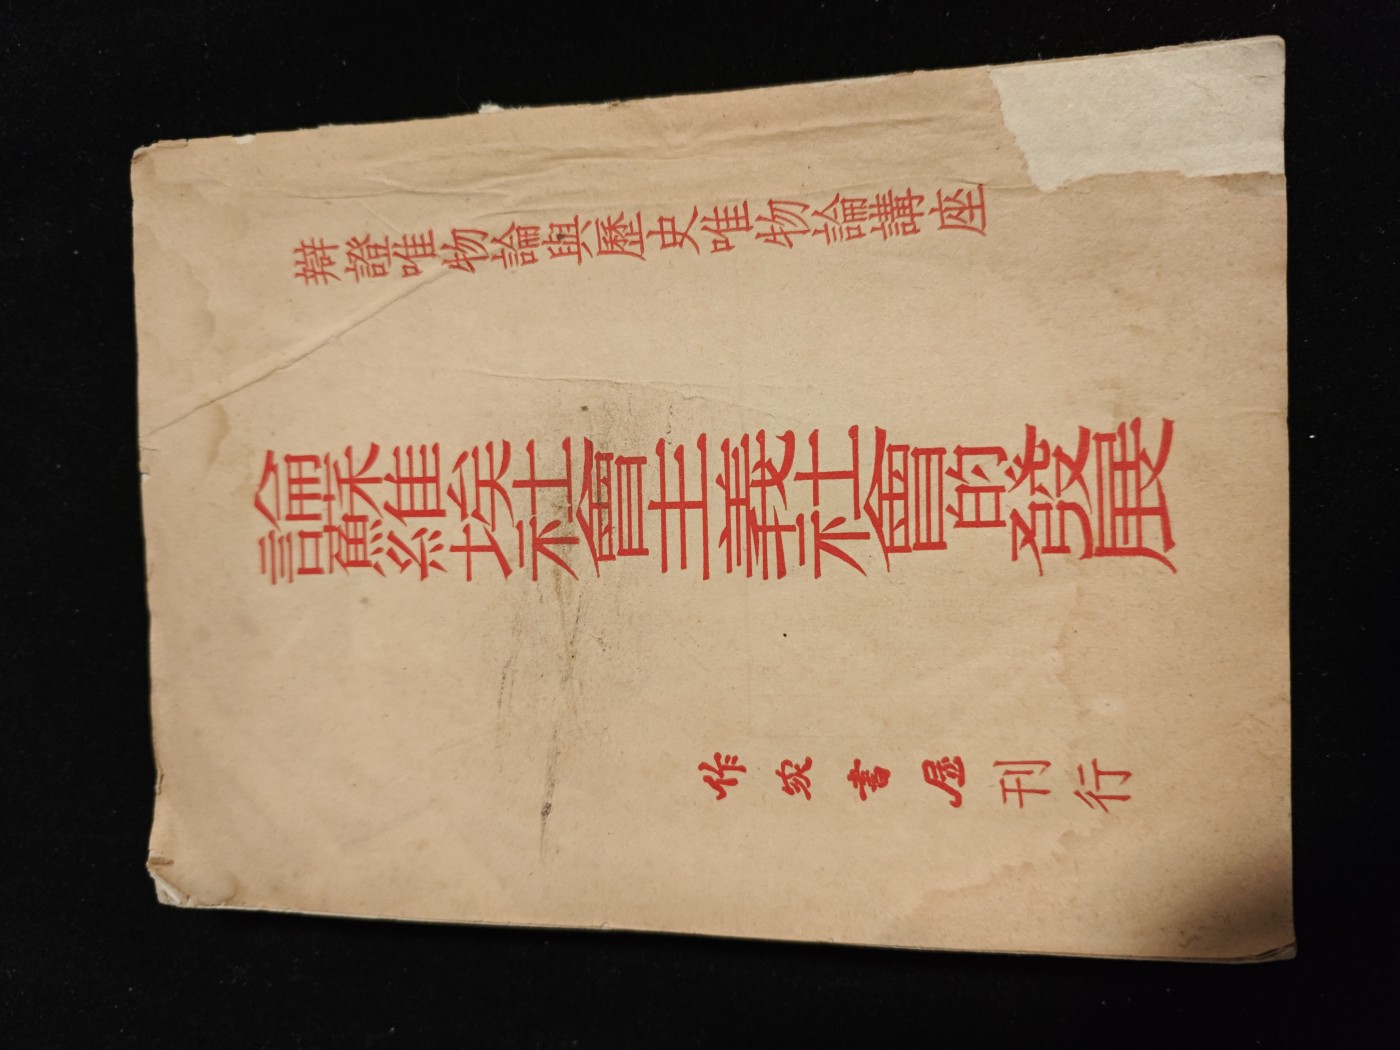 辯證唯物論與歷史唯物論講座
論蘇維埃社會主義社會的發展
作家書屋刊行